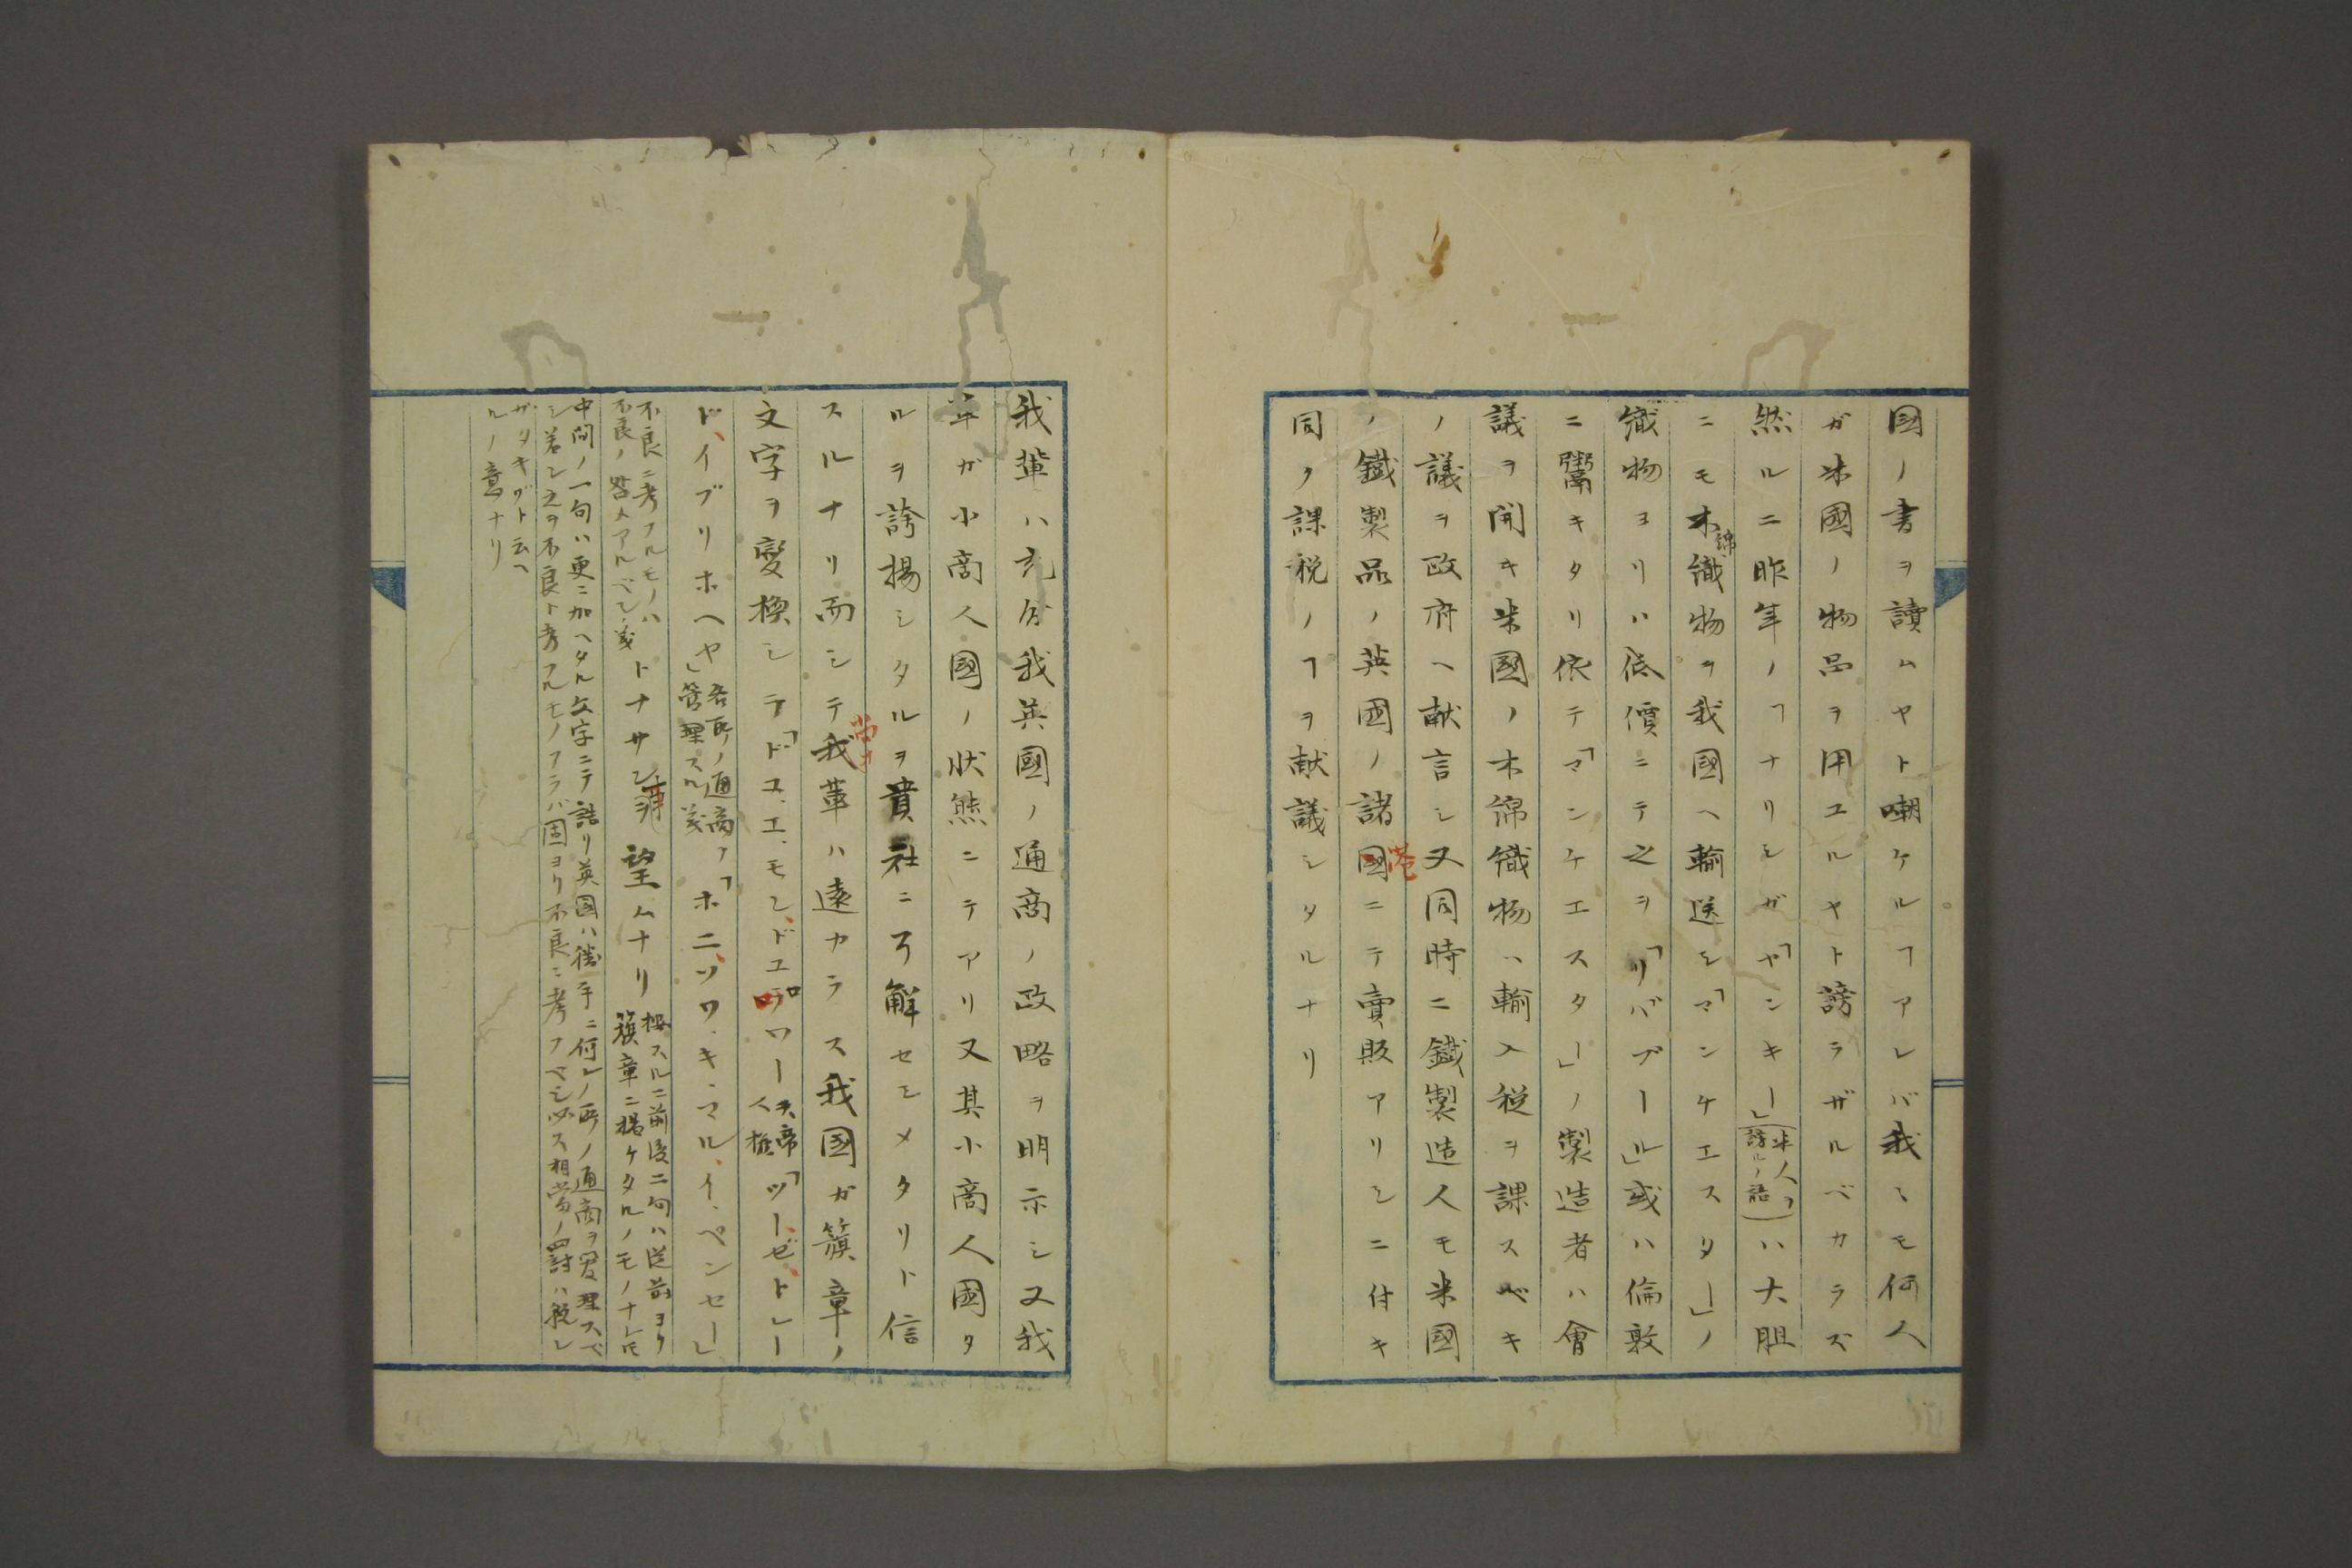 國ノ書ヲ讀ムヤト嘲ケルヿアレバ我〻モ何人
ガ米國ノ物品ヲ用ユルヤト謗ラザルベカラズ
然ルニ昨年ノヿナリシガ「ヤンキー」(米人ヲ謗ルノ語)ハ大胆
ニモ木綿織物ヲ我國ヘ輸送シ「マンケエスター」ノ
織物ヨリハ低價ニテ之ヲ「リバブール」或ハ倫敦
ニ鬻キタリ依テ「マンケエスター」ノ製造者ハ會
議ヲ開キ米國ノ木綿織物ハ輸入税ヲ課スベキ
ノ議ヲ政府ヘ献言シ又同時ニ鐵製造人モ米國
ノ鐵製品ノ英國ノ諸國港ニテ賣販アリシニ付キ
同ク課税ノヿヲ献議シタルナリ
我輩ハ充分我英國ノ通商ノ政略ヲ明示シ又我
輩ガ小商人國ノ状態ニテアリ又其小商人國タ
ルヲ誇揚シタルヲ貴社ニ了解セシメタリト信
スルナリ而シテ我輩ハ遠カラス我国ガ籏章ノ
文字ヲ變換シテ「ド、ユ、エ、モシ、ドユ
ド、イブリホヘヤ」各所ノ通商ヲ管理スル義「ホニ、ソワ、キ、マル、イ、ペンセー」
不良ニ考フルモノハ不良ノ咎メアルベシノ義トナサン
望ムナリ按スルニ前後二句ハ従前ヨリ籏章ニ掲ケタルノモノナレ𪜈
中間ノ一句ハ更ニ加ヘタル文字ニテ誇リ英国ハ勝手ニ何レノ所ノ通商ヲ管理スベ
シ若シ之ヲ不良ト考フルモノアラバ固ヨリ不良ニ考フベシ必ス相当ノ罰ハ税レ
ザタキヿト云ヘ
ルノ意ナリ